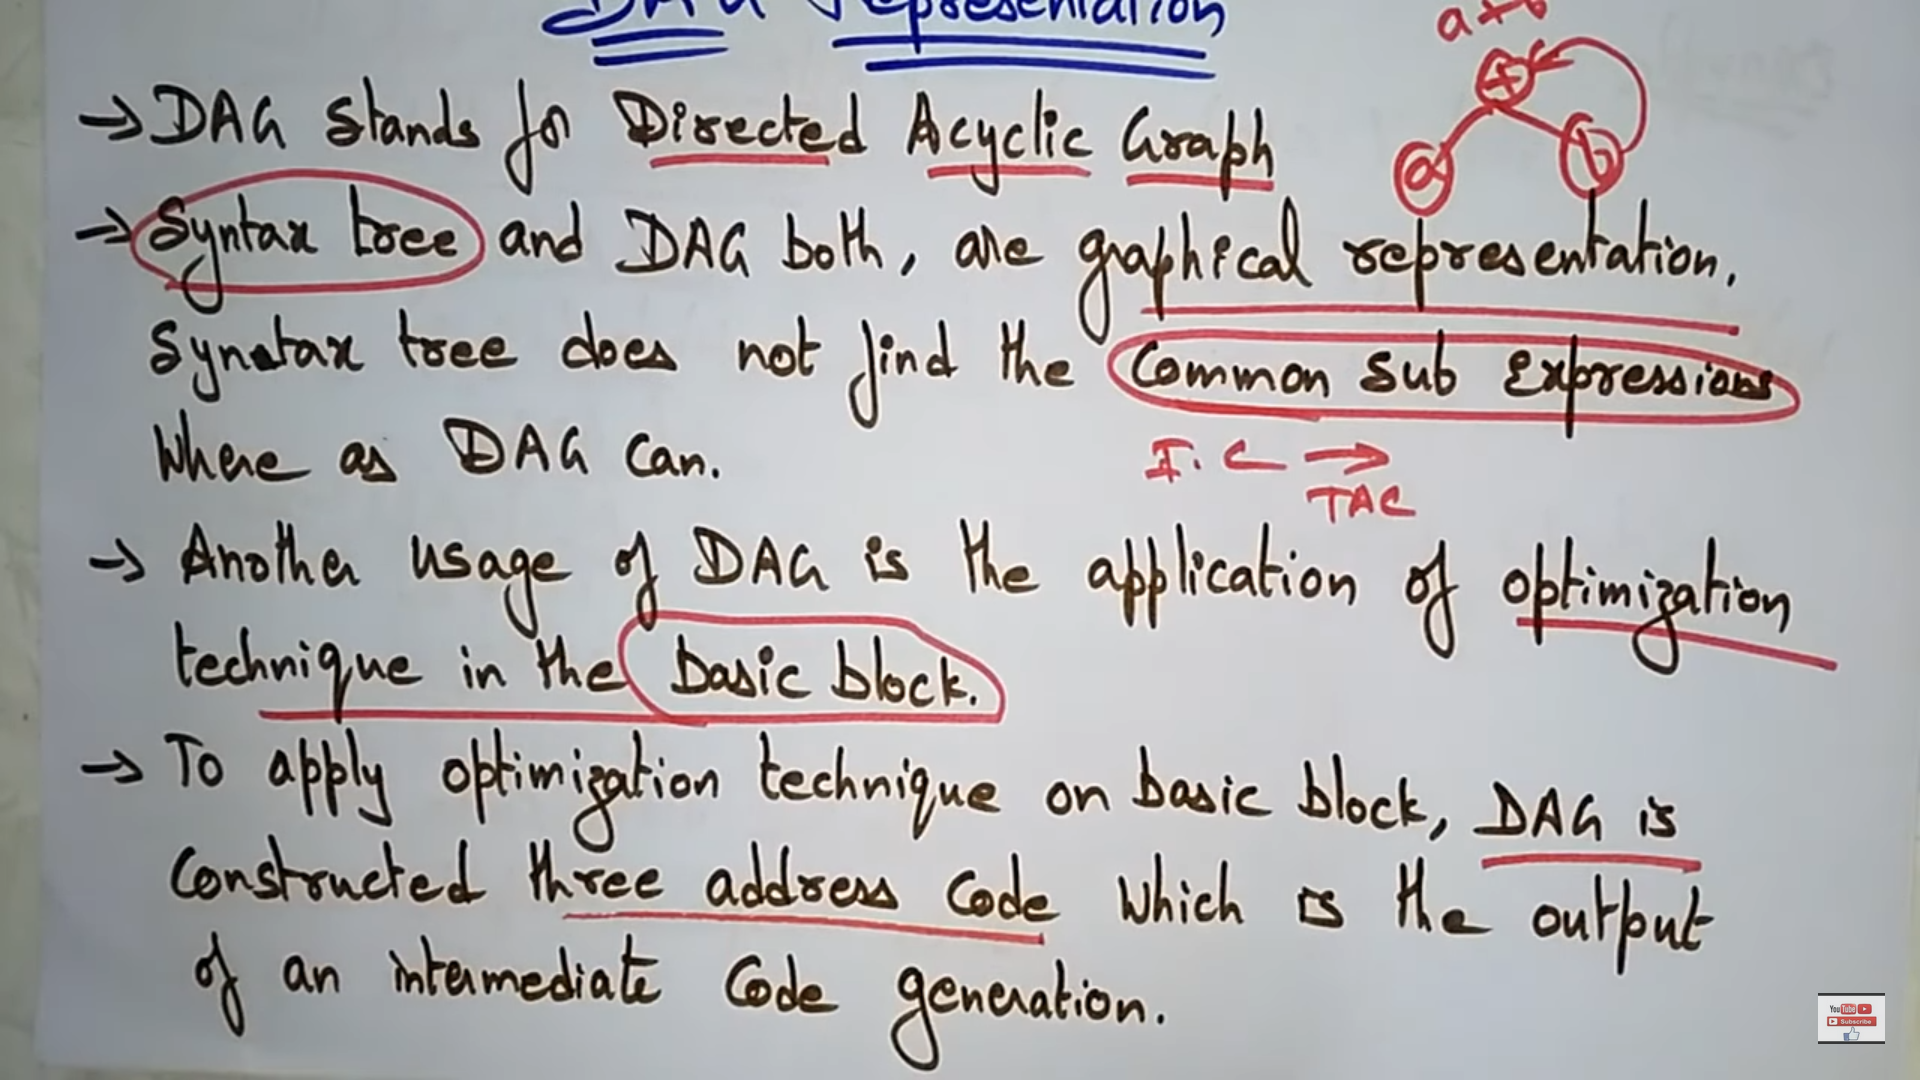 DAG representation
a+b
+
a b
→ DAG stands for Directed Acyclic Graph
→ Syntax tree and DAG both, are graphical representation.
Synatax tree does not find the Common Sub Expressions
Where as DAG Can.
I.C →
TAC
→ Another usage of DAG is the application of optimization
technique in the basic block.
→ To apply optimization technique on basic block, DAG is
Constructed three address Code Which is the output
of an intermediate Code generation.
YouTube
Subscribe